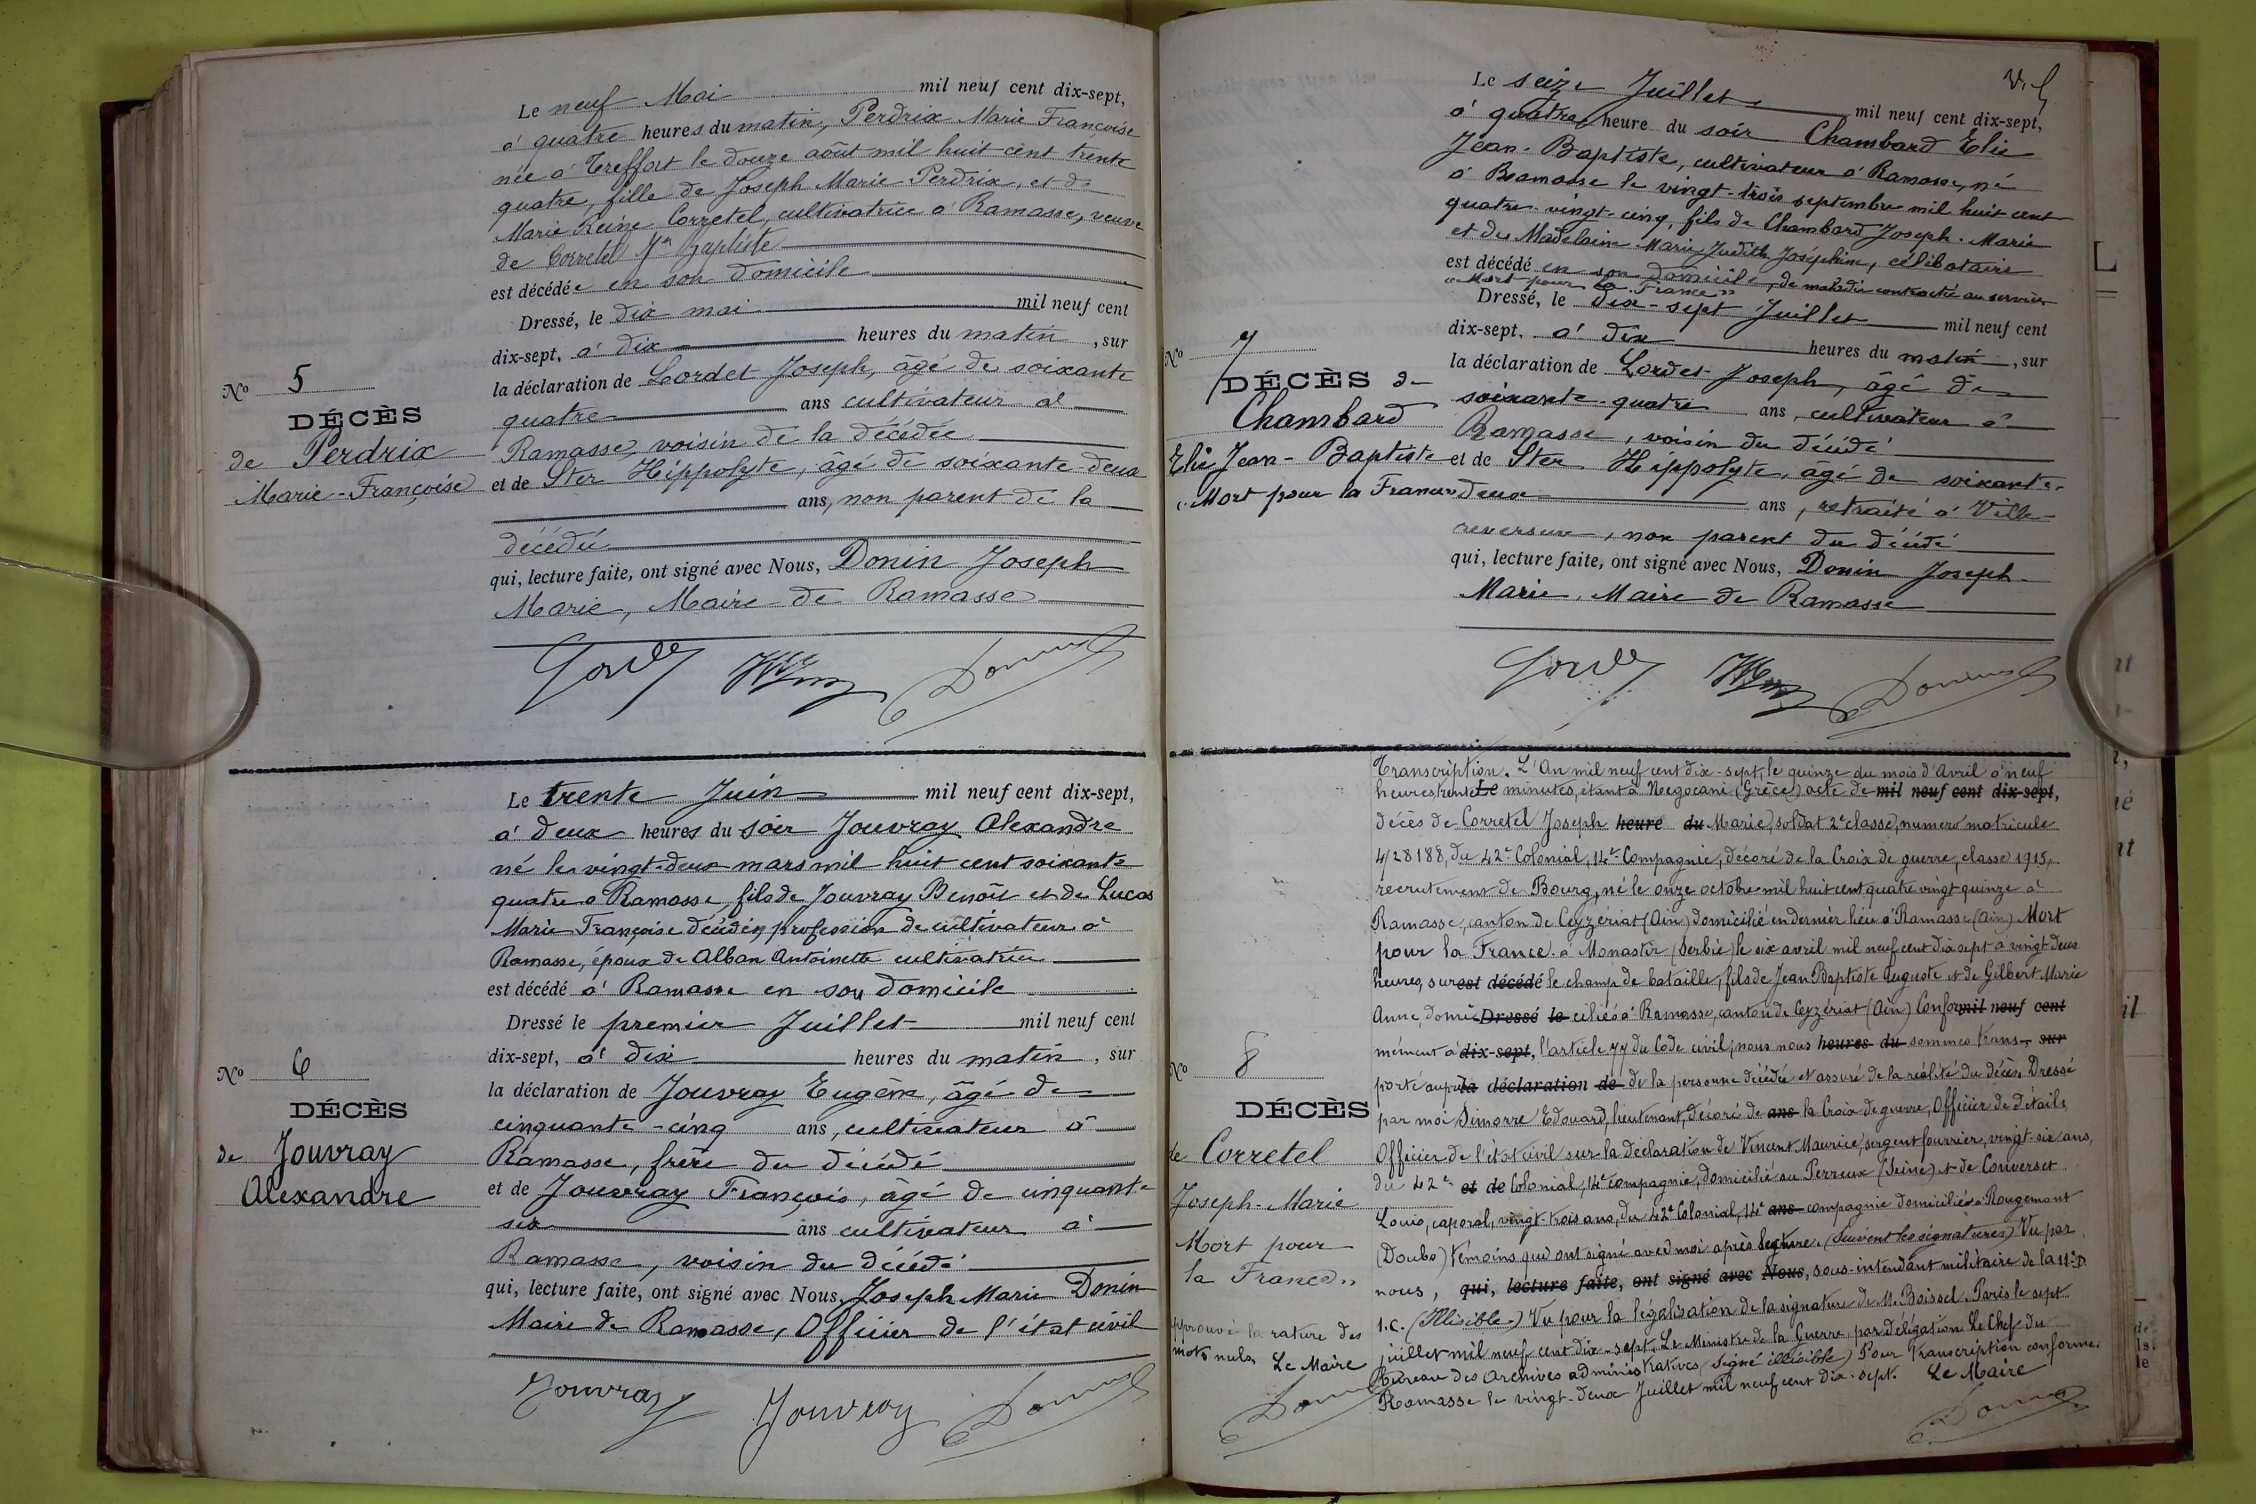 Le neuf Mai mil neuf cent dix-sept,
à quatre heures du matin, Perdrix Marie Françoise
née à Treffort le douze août mil huit cent trente
quatre, fille de Joseph Marie Perdrix, et de
Marie Reine Corretel, cultivatrice à Ramasse, veuve
de Corretel Jn Baptiste
est décédée en son domicile
Dressé, le dix mai mil neuf cent
dix-sept, à dix heures du matin, sur
la déclaration de Lordet Joseph, âgé de soixante
quatre ans cultivateur à
Ramasse, voisin de la décédée
et de Ster Hippolyte, âgé de soixante-deux
ans, non parent de la
décédée
qui, lecture faite, ont signé avec Nous, Donin Joseph
Marie, Maire de Ramasse
No 5
DÉCÈS
de Perdrix
Marie-Françoise
Le trente Juin mil neuf cent dix-sept,
à deux heures du soir Jouvray Alexandre
né le vingt-deux mars mil huit cent soixante
quatre à Ramasse, fils de Jouvray Benoît et de Lucas
Marie Françoise décédés, profession de cultivateur à
Ramasse, époux de Alban Antoinette cultivatrice
est décédé à Ramasse en son domicile
Dressé le premier Juillet mil neuf cent
dix-sept, à dix heures du matin, sur
la déclaration de Jouvray Eugène, âgé de
cinquante-cinq ans, cultivateur à
Ramasse, frère du décédé
et de Jouvray François, âgé de cinquante
six ans cultivateur à
Ramasse, voisin du décédé
qui, lecture faite, ont signé avec Nous, Joseph Marie Donin
Maire de Ramasse, Officier de l'état civil
Jouvray Jouvray Donin
No 6
DÉCÈS
de Jouvray
Alexandre
Le seize Juillet mil neuf cent dix-sept,
à quatre heure du soir Chambard Elie
Jean-Baptiste, cultivateur à Ramasse, né
à Ramasse le vingt-trois septembre mil huit cent
quatre-vingt-cinq, fils de Chambard Joseph-Marie
et de Madelaine Marie Judith Joséphine, célibataire
est décédé en son domicile, de maladie contractée au service
"Mort pour la France"
Dressé, le dix-sept Juillet mil neuf cent
dix-sept, à dix heures du matin, sur
la déclaration de Lordet Joseph, âgé de
soixante-quatre ans, cultivateur à
Ramasse, voisin du décédé
et de Ster Hippolyte, âgé de soixante-
deux ans, retraité à Ville-
reversure, non parent du décédé
qui, lecture faite, ont signé avec Nous, Donin Joseph-
Marie, Maire de Ramasse
No 7
DÉCÈS de
Chambard
Elie Jean-Baptiste
"Mort pour la France"
Transcription. L'An mil neuf cent dix-sept, le quinze du mois d'Avril à neuf
heures, trente Le minutes, étant à Negocani (Grèce) acte de mil neuf cent dix-sept,
décès de Corretel Joseph heure du Marie, soldat 2e classe, numéro matricule
4/28188, du 42e Colonial, 14e Compagnie, décoré de la Croix de guerre, classe 1915,
recrutement de Bourg, né le onze octobre mil huit cent quatre vingt quinze à
Ramasse, canton de Ceyzériat (Ain) domicilié en dernier lieu à Ramasse (Ain) Mort
pour la France à Monastir (Serbie) le six avril mil neuf cent dix sept à vingt deux
heures, sur est décédé le champ de bataille, fils de Jean Baptiste Auguste et de Gilbert Marie
Anne, domi Dressé le ciliés à Ramasse, canton de Ceyzériat (Ain) Confor mil neuf cent
mément à dix-sept, l'article 77 du Code civil, nous nous heures du sommes trans-, sur
porté auprès la déclaration de de la personne décédée et assuré de la réalité du décès. Dressé
par moi Simorre Edouard, lieutenant, décoré de ans la Croix de guerre, Officier de détails
Officier de l'état civil sur la déclaration de Vincent Maurice, sergent fourrier, vingt-six ans,
du 42e et de Colonial, 14e compagnie, domicilié au Perreux (Seine) et de Converset
Louis, caporal, vingt-trois ans, du 42e Colonial, 14e ans compagnie domicilié à Rougemont
(Doubs) témoins qui ont signé avec moi après lecture. (Suivent les signatures) Vu par
nous, qui, lecture faite, ont signé avec Nous, sous-intendant militaire de la 11e D.
I.C. (Illisible) Vu pour la légalisation de la signature de M. Boissel. Paris le sept
juillet mil neuf cent dix-sept. Le Ministre de la Guerre, par délégation Le Chef du
Bureau des Archives administratives (signé illisible) Pour Transcription conforme.
Ramasse le vingt-deux Juillet mil neuf cent dix-sept. Le Maire
Donin
No 8
DÉCÈS
de Corretel
Joseph-Marie
Mort pour
la France"
pprouvé la rature des
mots nuls, Le Maire
Donin